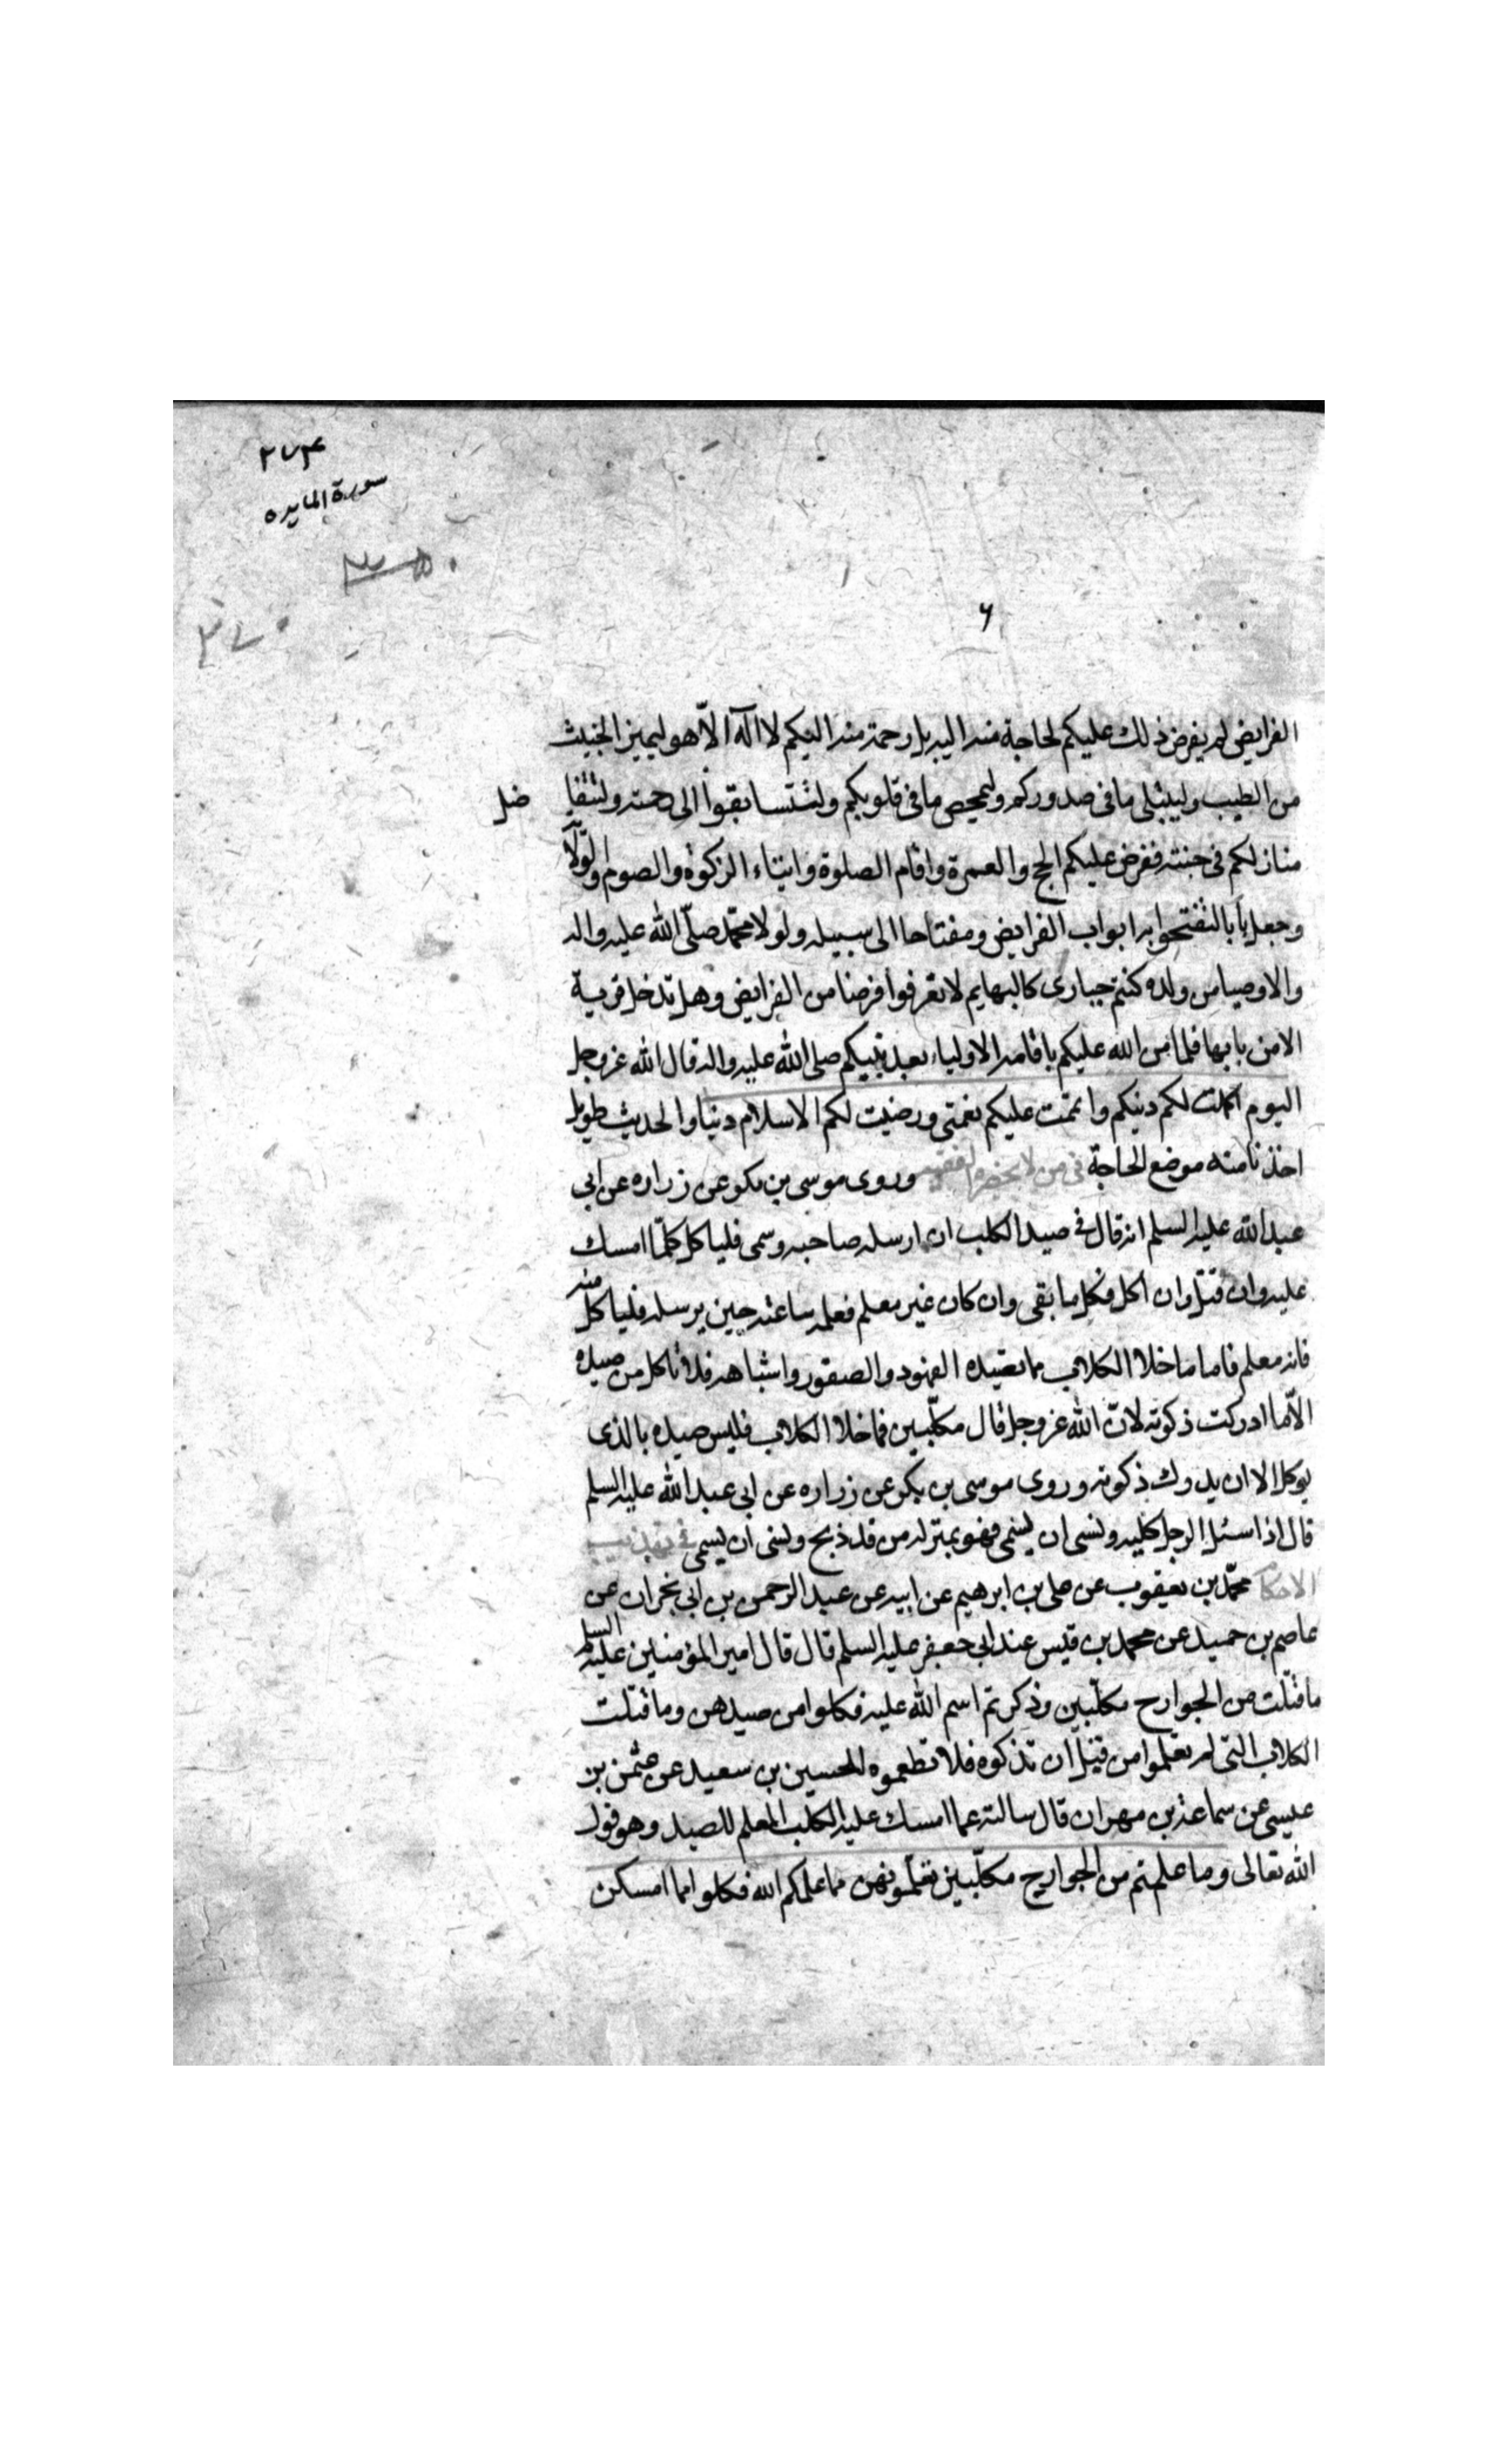 ٢٧۴
سورة المايده
٢٧٠
۶
الفرايض لم يفرض ذلك عليكم لحاجة منه اليه بل رحمة منه اليكم لا اله الّا هو ليميز الخبيث
من الطيب وليبتلى ما فى صدوركم وليمحص ما فى قلوبكم ولتتسابقوا الى رحمته ولتتفا ضل
منازلكم فى جنته ففرض عليكم الحج والعمرة واقام الصلوة وايتاء الزكوة والصوم والولاّ
وجعل بابا لتفتحوا به ابواب الفرايض ومفتاحا الى سبيله ولولا محمّد صلّى الله عليه واله
والاوصيا من ولده كنتم حيارى كالبهايم لا تعرفوا فرضا من الفرايض وهل تدخل قرية
الا من بابها فلما من الله عليكم باقامه الاولياء بعد نبيكم صلى الله عليه واله قال الله عز وجل
اليوم اكملت لكم دينكم واتممت عليكم نعمتى ورضيت لكم الاسلام دينا والحديث طويل
اخذنا منه موضع الحاجة فى من لا يحضره الفقيه وروى موسى بن بكر عن زراره عن ابى
عبد الله عليه السلم انه قال فى صيد الكلب ان ارسله صاحبه وسمى فلياكل كلمّا امسك
عليه وان قتل وان اكل فكل ما بقى وان كان غير معلم فعلمه ساعته حين يرسله فلياكل منه
فانه معلم فاما ما خلا الكلاب مما تصيده الفهود والصقور واشباهه فلا تاكل من صيده
الّا ما ادركت ذكوته لانّ الله عز وجل قال مكلّبين فما خلا الكلاب فليس صيده بالذى
يوكل الا ان يدرك ذكوته وروى موسى بن بكر عن زراره عن ابى عبد الله عليه السلم
قال اذا اسئل الرجل كلبه ونسى ان يسمى فهو بمنزله من قد ذبح ونسى ان يسمى فى تهذيب
الاحكام محمّد بن يعقوب عن على بن ابرهيم عن ابيه عن عبد الرحمن بن ابى نجران عن
عاصم بن حميد عن محمد بن قيس عند ابى جعفر عليه السلم قال قال امير المؤمنين عليه السلم
ما قتلت من الجوارح مكلّبين وذكرتم اسم الله عليه فكلوا من صيدهن وما قتلت
الكلاب التى لم تعلموا من قبل ان تذكوه فلا تطعموه الحسين بن سعيد عن عثمن بن
عيسى عن سماعة بن مهران قال سالته عما امسك عليه الكلب المعلم للصيد وهو قول
الله تعالى وما علمتم من الجوارح مكلّبين تعلّمونهن مما علمكم الله فكلوا مما امسكن